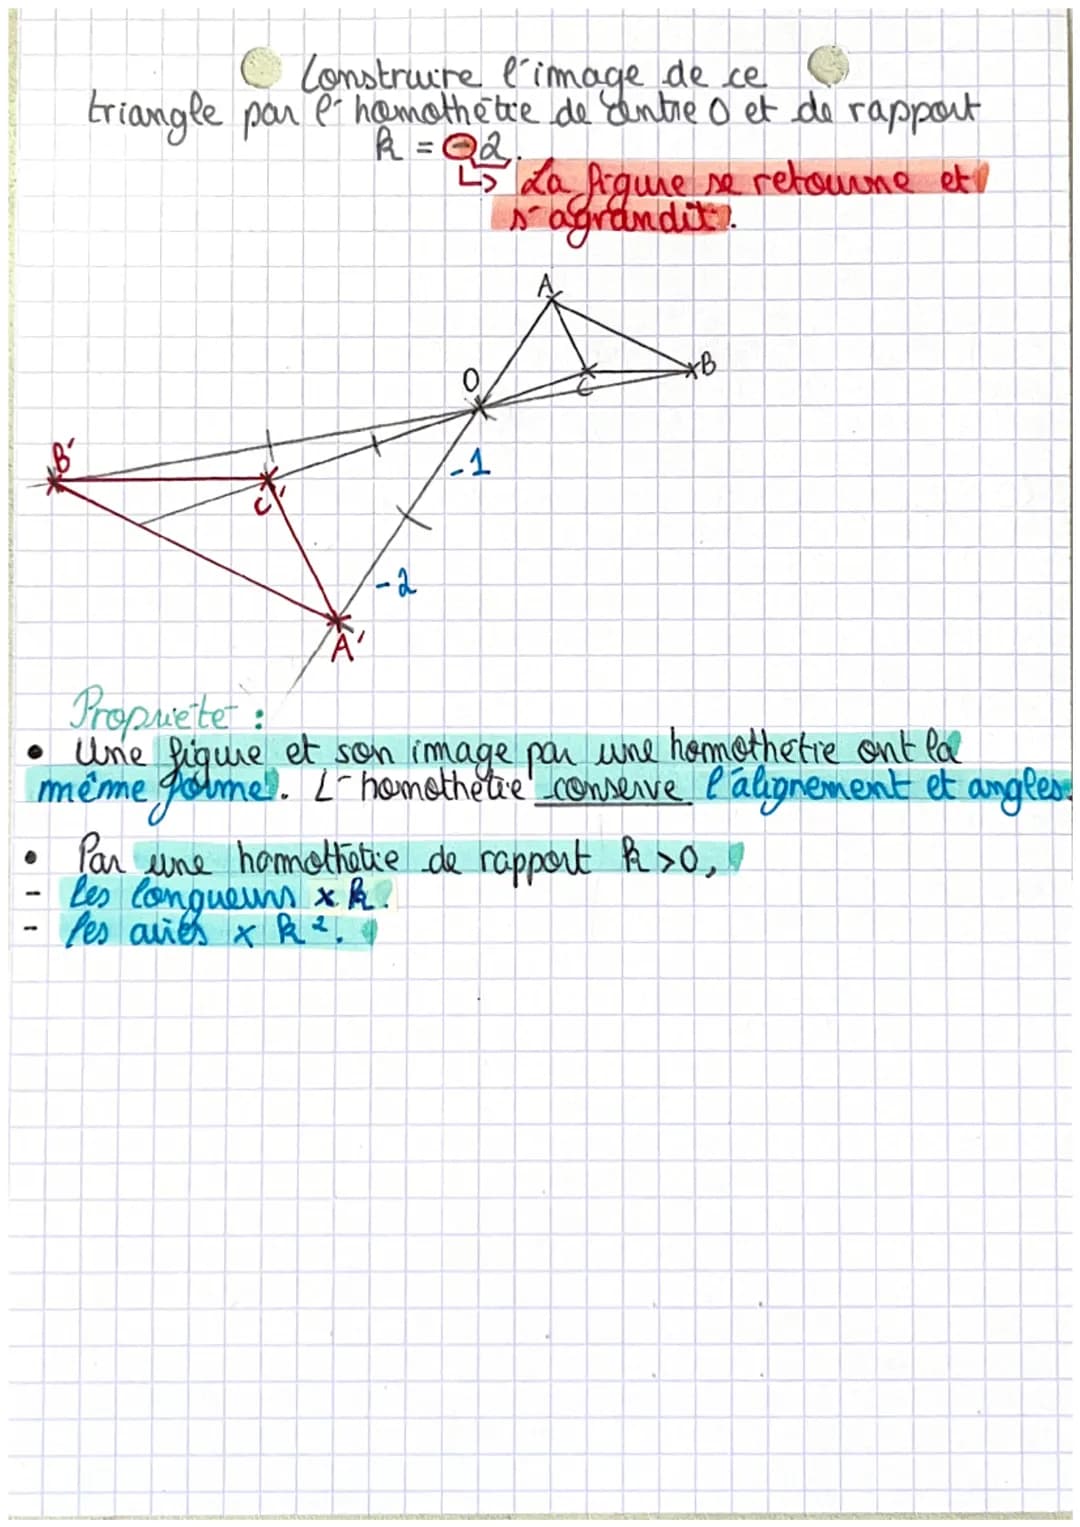 Construire l'image de ce
triangle par l'homothétie de centre O et de rapport
k = -2.
↳ La figure se retourne et
s'agrandit.
A
O
C
B
B'
-1
C'
-2
A'
Propriété :
• Une figure et son image par une homothétie ont la
même forme. L'homothétie conserve l'alignement et angles.
• Par une homothétie de rapport k > 0,
- les longueurs × k.
- les aires × k².